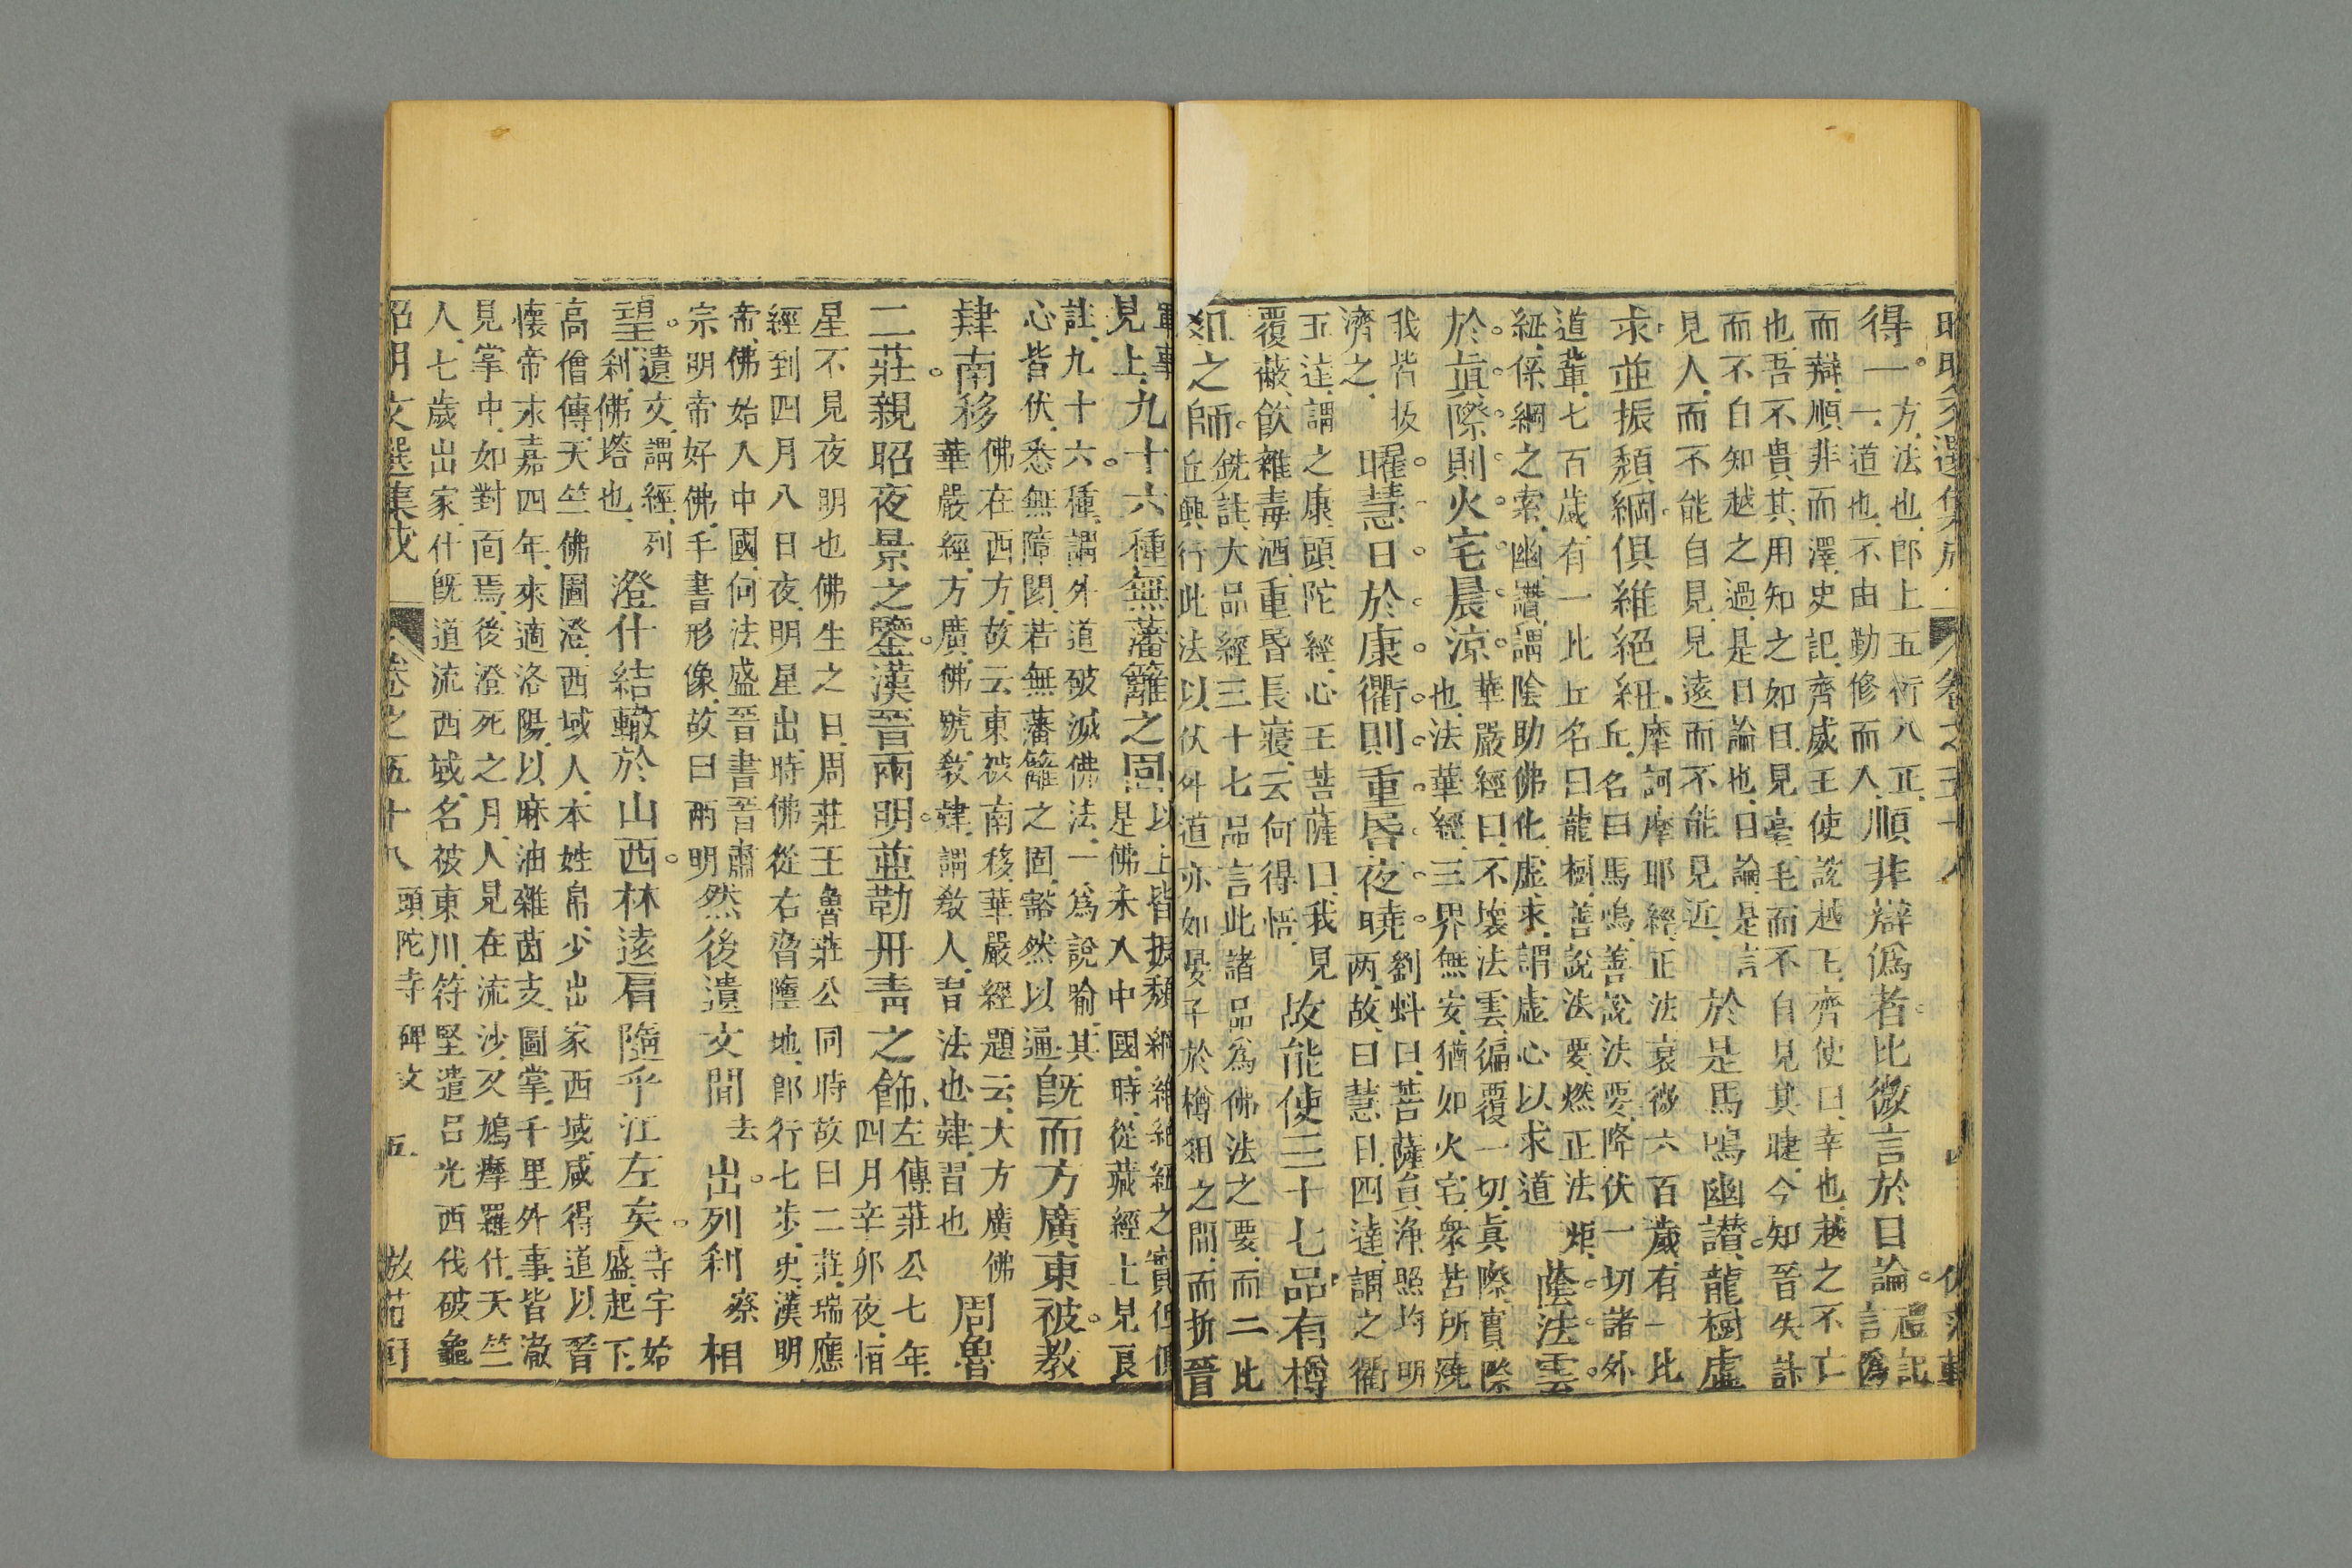 昭明文選集成 卷之五十八
得一。方法也郎上五衍八正
一道也不由勤修而入 順非辯僞者比微言於目論。禮記言僞
而辯順非而澤史記齊威王使說越王齊使曰幸也越之不亡
也吾不貴其用知之如目見毫毛而不自見其睫今知晉失計
而不自知越之過是目論也目論是言
見人而不能自見見遠而不能見近 於是馬鳴幽讃。龍樹虛
求並振頹綱俱維絕紐 摩訶摩耶經正法衰微六百歲有一比
丘名曰馬鳴善說法要降伏一切諸外
道輩七百歲有一比丘名曰龍樹善說法要燃正法炬
紐係綱之索幽讃謂陰助佛化虛求謂虛心以求道 蔭法雲
於眞際則火宅晨涼 華嚴經曰不壞法雲徧覆一切眞際實際
也法華經三界無安猶如火宅衆苦所燒
我皆拔濟之 曜慧日於康衢則重昏夜曉 劉虯曰菩薩員淨照均明
两故曰慧日四達謂之衢
五達謂之康頭陀經心王菩薩曰我見
覆蔽飲雜毒酒重昏長寢云何得悟 故能使三十七品有樽
俎之師 銑註大品經三十七品言此諸品爲佛法之要而二比
丘興行此法以伏外道亦如晏子於樽俎之間而折晉
軍事
見上九十六種無藩籬之固 以上皆振頹綱維絕紐之實但佛
是佛未入中國時從藏經上見良
註九十六種謂外道破滅佛法一爲說喻其
心皆伏悉無障閡若無藩籬之固豁然以通 既而方廣東被。教
肆南移 佛在西方故云東被南移華嚴經題云大方廣佛
華嚴經方廣佛號教肄謂教人習法也肄習也 周魯
二莊親昭夜景之鑒漢晉兩明並勒丹青之飾 左傳莊公七年
四月辛卯夜恒
星不見夜明也佛生之日周莊王魯莊公同時故曰二莊瑞應
經到四月八日夜明星出時佛從右脅墮地郎行七步史漢明
帝佛始入中國何法盛晉書晉肅
宗明帝好佛手書形像故曰兩明 然後遺文間去出。列刹察相
望。遺文謂經列
刹佛塔也 澄什結轍於山西。林遠肩隨乎江左矣。寺宇始
盛起下
高僧傳天竺佛圖澄西域人本姓帛少出家西域咸得道以晉
懷帝永嘉四年來適洛陽以麻油雜茵支圖掌千里外事皆澈
見掌中如對面焉後澄死之月人見在流沙又鳩摩羅什天竺
人七歲出家什既道流西域名被東川符堅遣呂光西伐破龜
昭明文選集成 卷之五十八 頭陀寺碑文 五